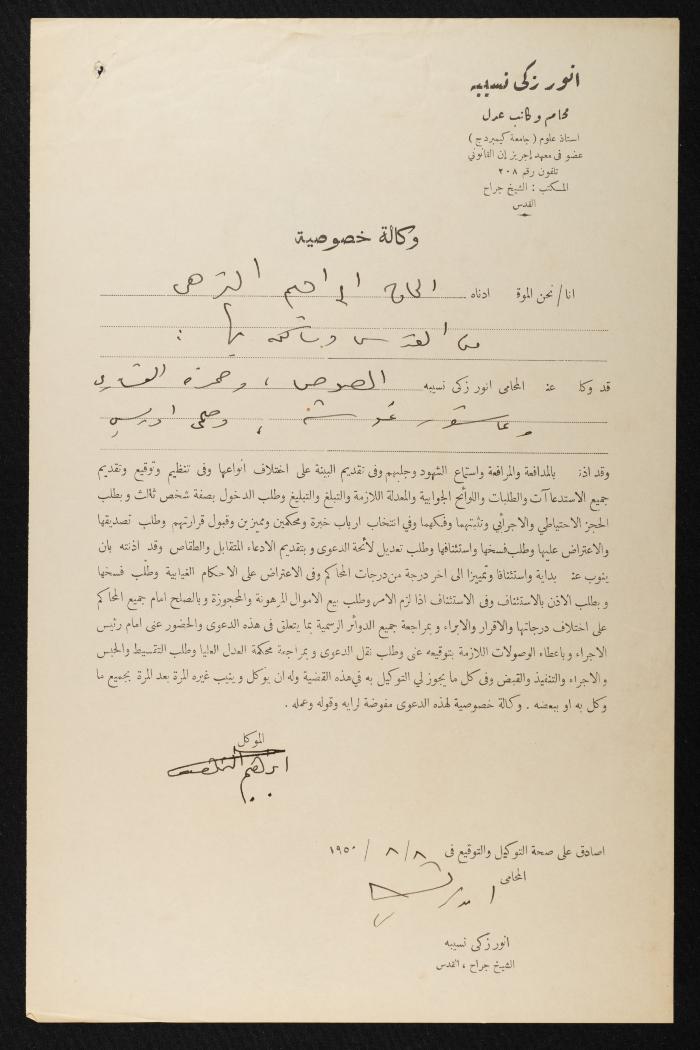 انور زكى نسيبه
محام وكاتب عدل
استاذ علوم ( جامعة كيمبردج )
عضو فى معهد إجريز إن القانونى
تلفون رقم ٢٠٨
المكتب : الشيخ جراح
القدس
وكالة خصوصية
انا/نحن الموقع ادناه الحاج ابراهيم
من القدس وساكن بها :
قد وكل عن المحامى انور زكى نسيبه
وعاشور غوشه ،
وقد اذن بالمدافعة والمرافعة واستماع الشهود وجلبهم وفى تقديم البينة على اختلاف انواعها وفى تنظيم وتوقيع وتقديم
جميع الاستدعاآت والطلبات واللوائح الجوابية والمعدلة اللازمة والتبلغ والتبليغ وطلب الدخول بصفة شخص ثالث و بطلب
الحجز الاحتياطي والاجرائي وتثبيتهما وفكهما وفي انتخاب ارباب خبرة ومحكمين ومميزين وقبول قرارتهم وطلب تصديقها
والاعتراض عليها وطلب فسخها واستئنافها وطلب تعديل لائحة الدعوى و بتقديم الادعاء المتقابل والطقاص وقد اذنته بان
ينوب عن بداية واستئنافا وتمييزا الى اخر درجة من درجات المحاكم وفى الاعتراض على الاحكام الغيابية وطلب فسخها
و بطلب الاذن بالاستئناف وفى الاستئناف اذا لزم الامر وطلب بيع الاموال المرهونة والمحجوزة و بالصلح امام جميع المحاكم
على اختلاف درجاتها والاقرار والابراء و بمراجعة جميع الدوائر الرسمية بما يتعلق فى هذه الدعوى والحضور عنى امام رئيس
الاجراء و باعطاء الوصولات اللازمة بتوقيعه عنى وطلب نقل الدعوى و بمراجعة محكمة العدل العليا وطلب التقسيط والحبس
و الاجراء والتنفيذ والقبض وفى كل ما يجوز لي التوكيل به في هذه القضية وله ان يوكل و ينيب غيره المرة بعد المرة بجميع ما
وكل به او ببعضه . وكالة خصوصية لهذه الدعوى مفوضة لرايه وقوله وعمله .
الموكل
ابراهيم
اصادق على صحة التوكيل والتوقيع فى ٨ / ٨ / ١٩٥٠
المحامى
انور زكى نسيبه
الشيخ جراح ، القدس